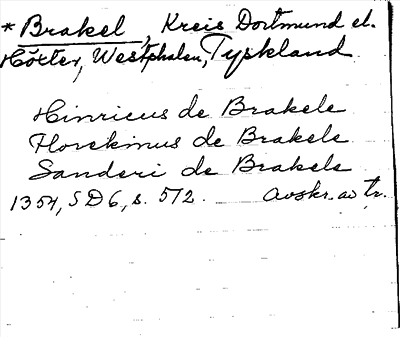 * Brakel, Kreis Dortmund el.
Höxter, Westphalen, Tyskland
Hinricus de Brakele
Florekinus de Brakele
Sanderi de Brakele
1354, SD6, s. 572. Avskr. av tr.